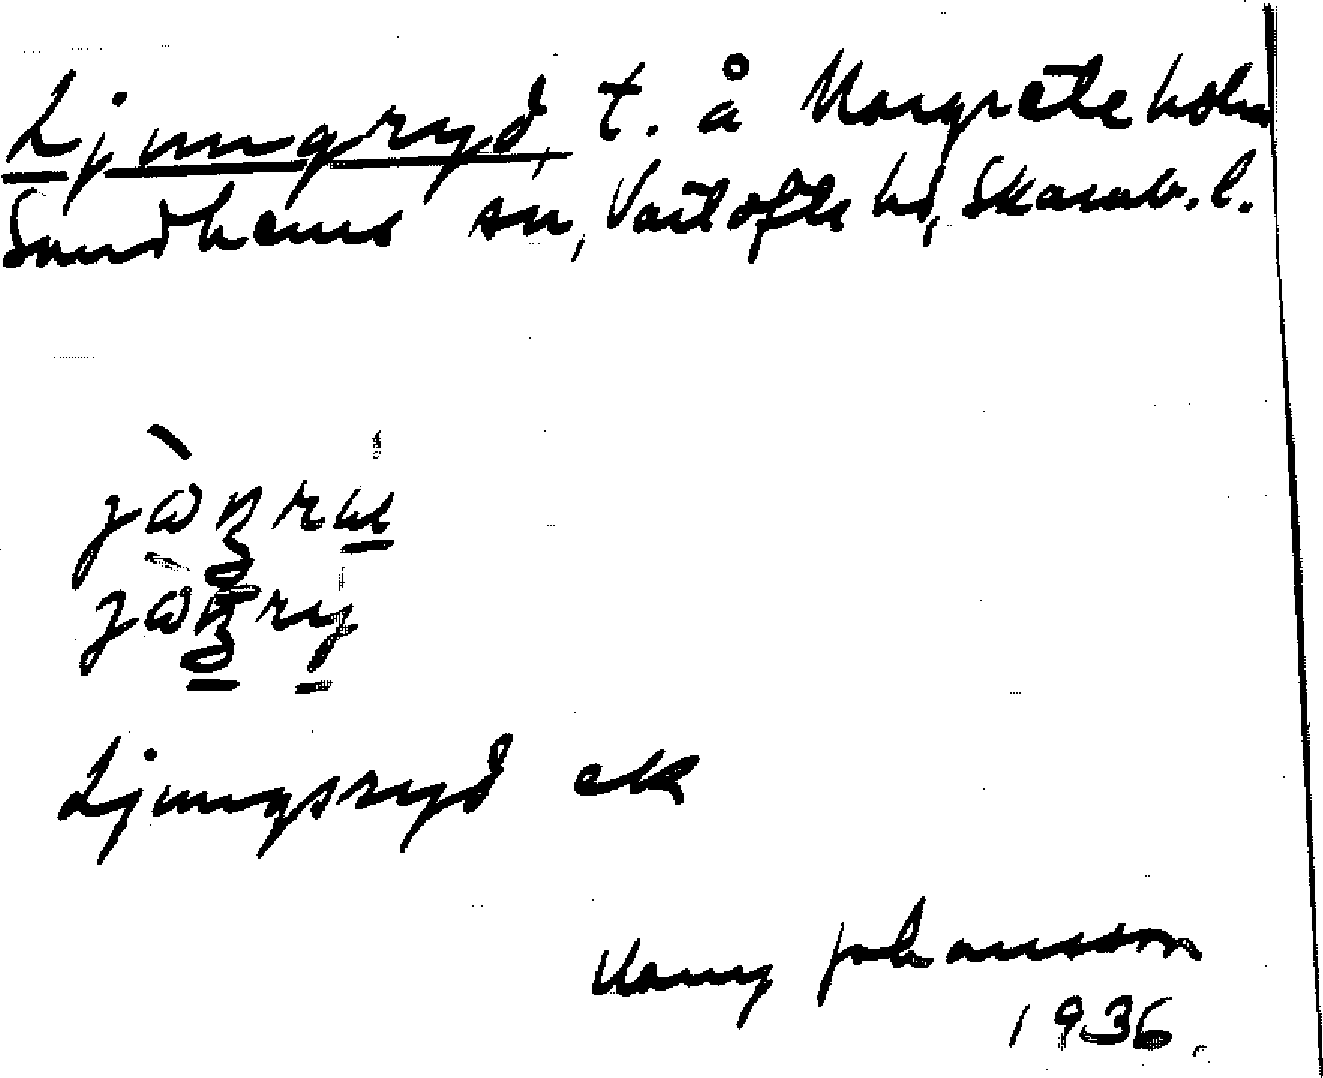 Ljungryd, t. å Margreteholm
Sandhems sn, Vartofta hd, Skarab. l.
Ljungsryd ek
Johansson
1936.